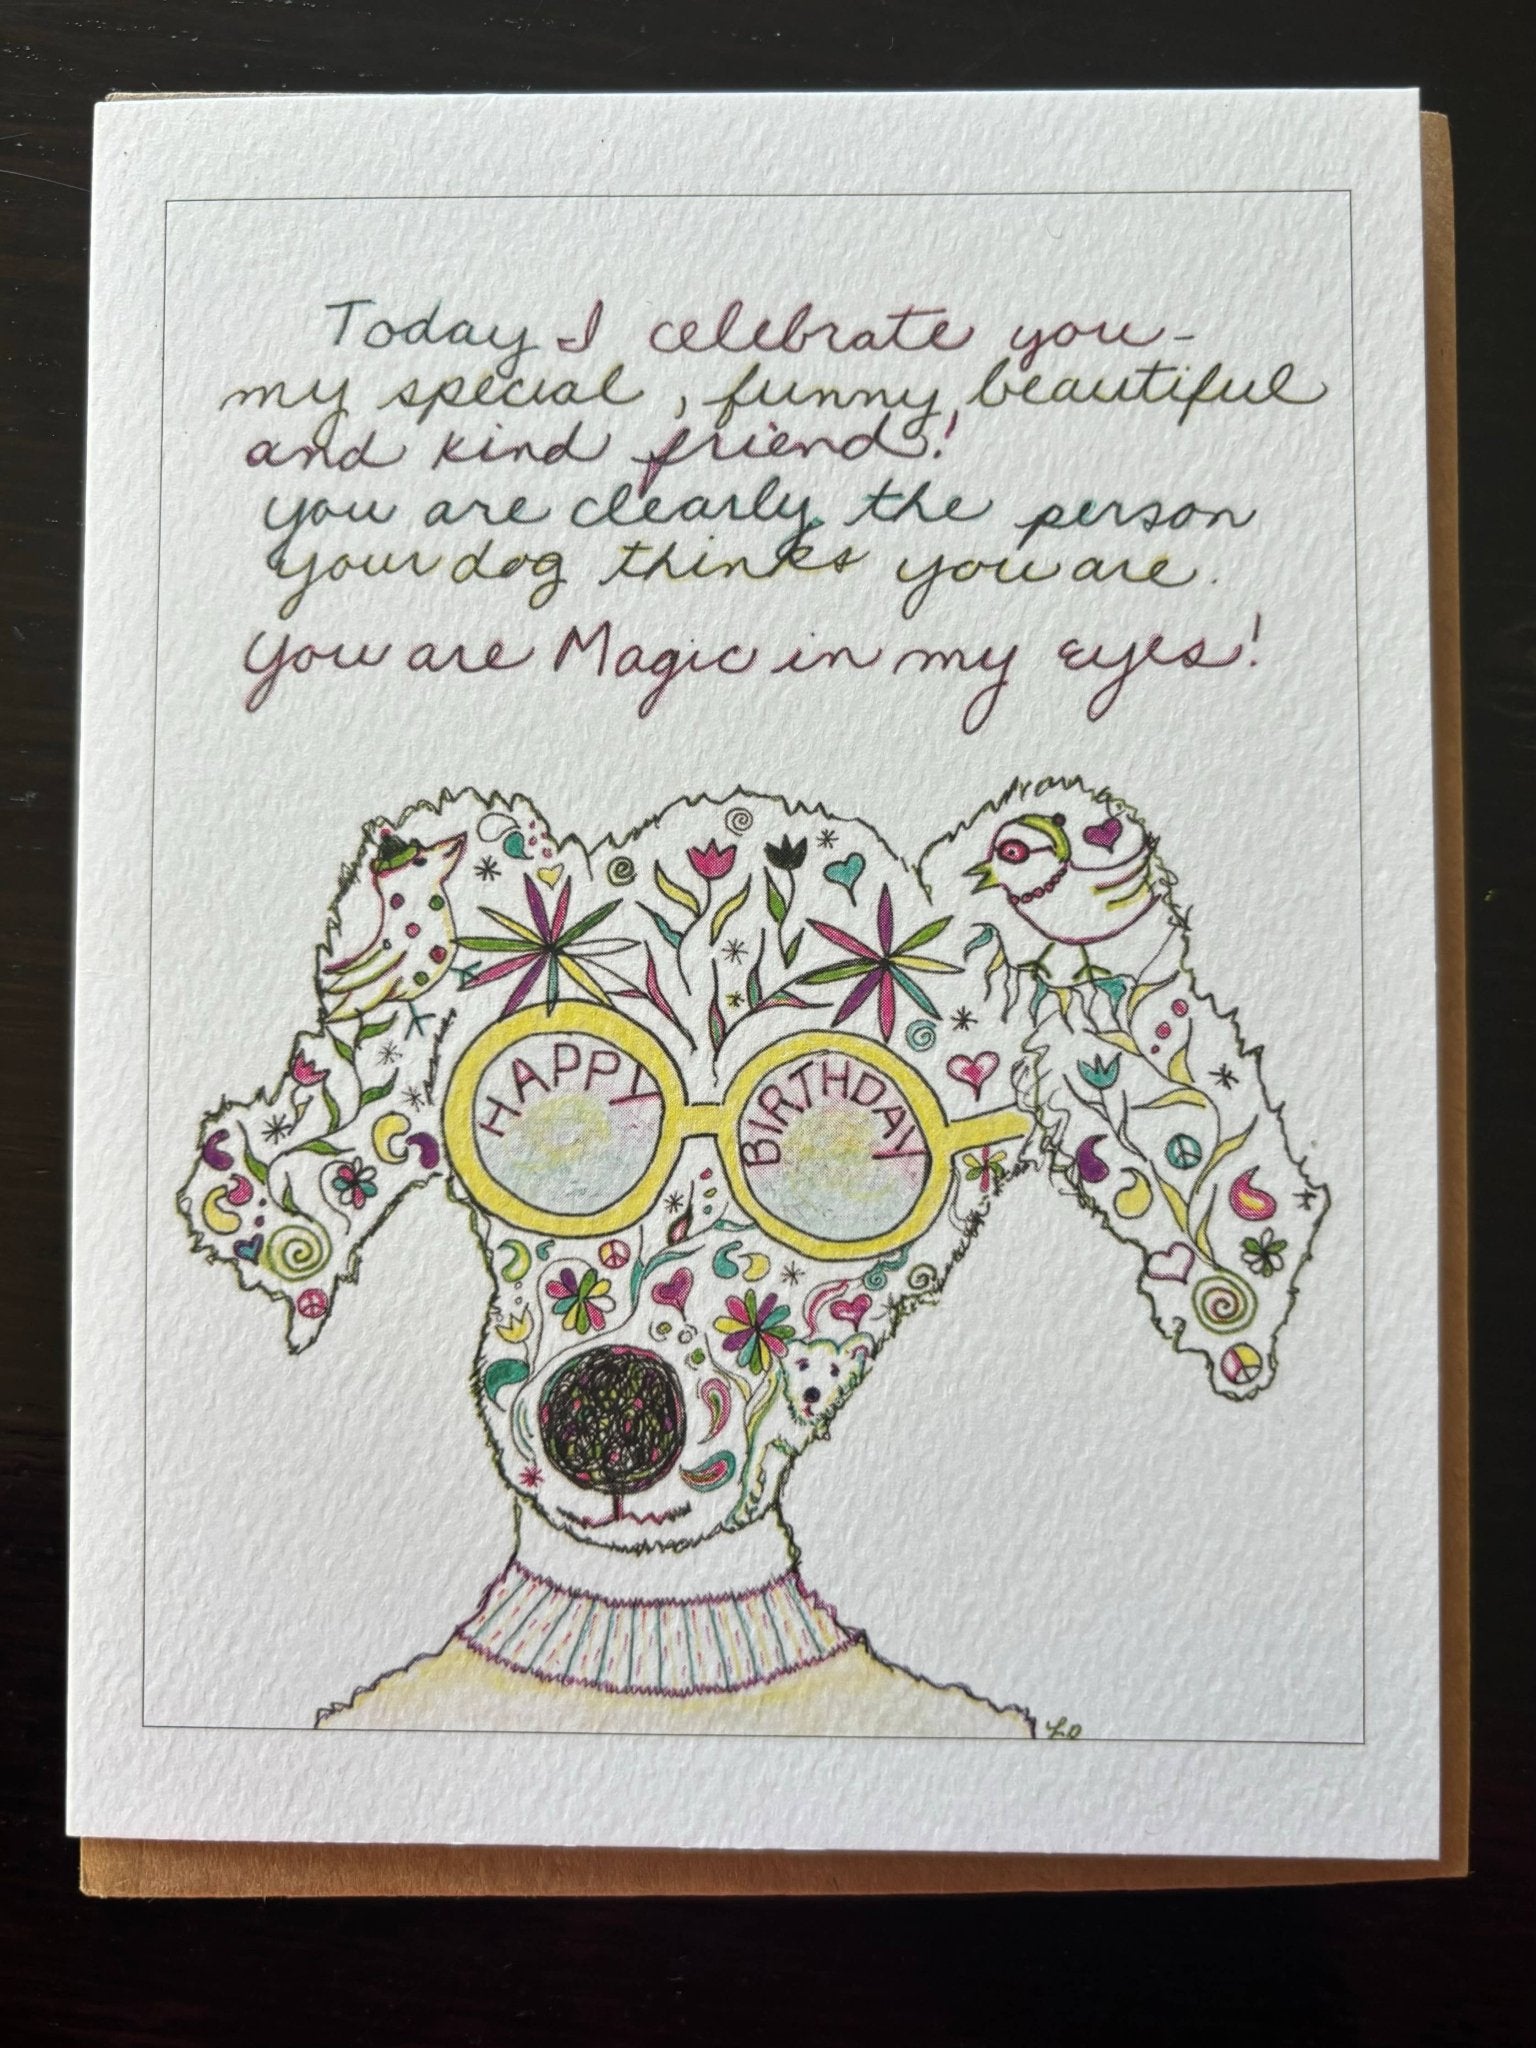 Today I celebrate you-
my special, funny beautiful
and kind friend!
you are clearly the person
your dog thinks you are.
You are Magic in my eyes!
HAPPY
BIRTHDAY